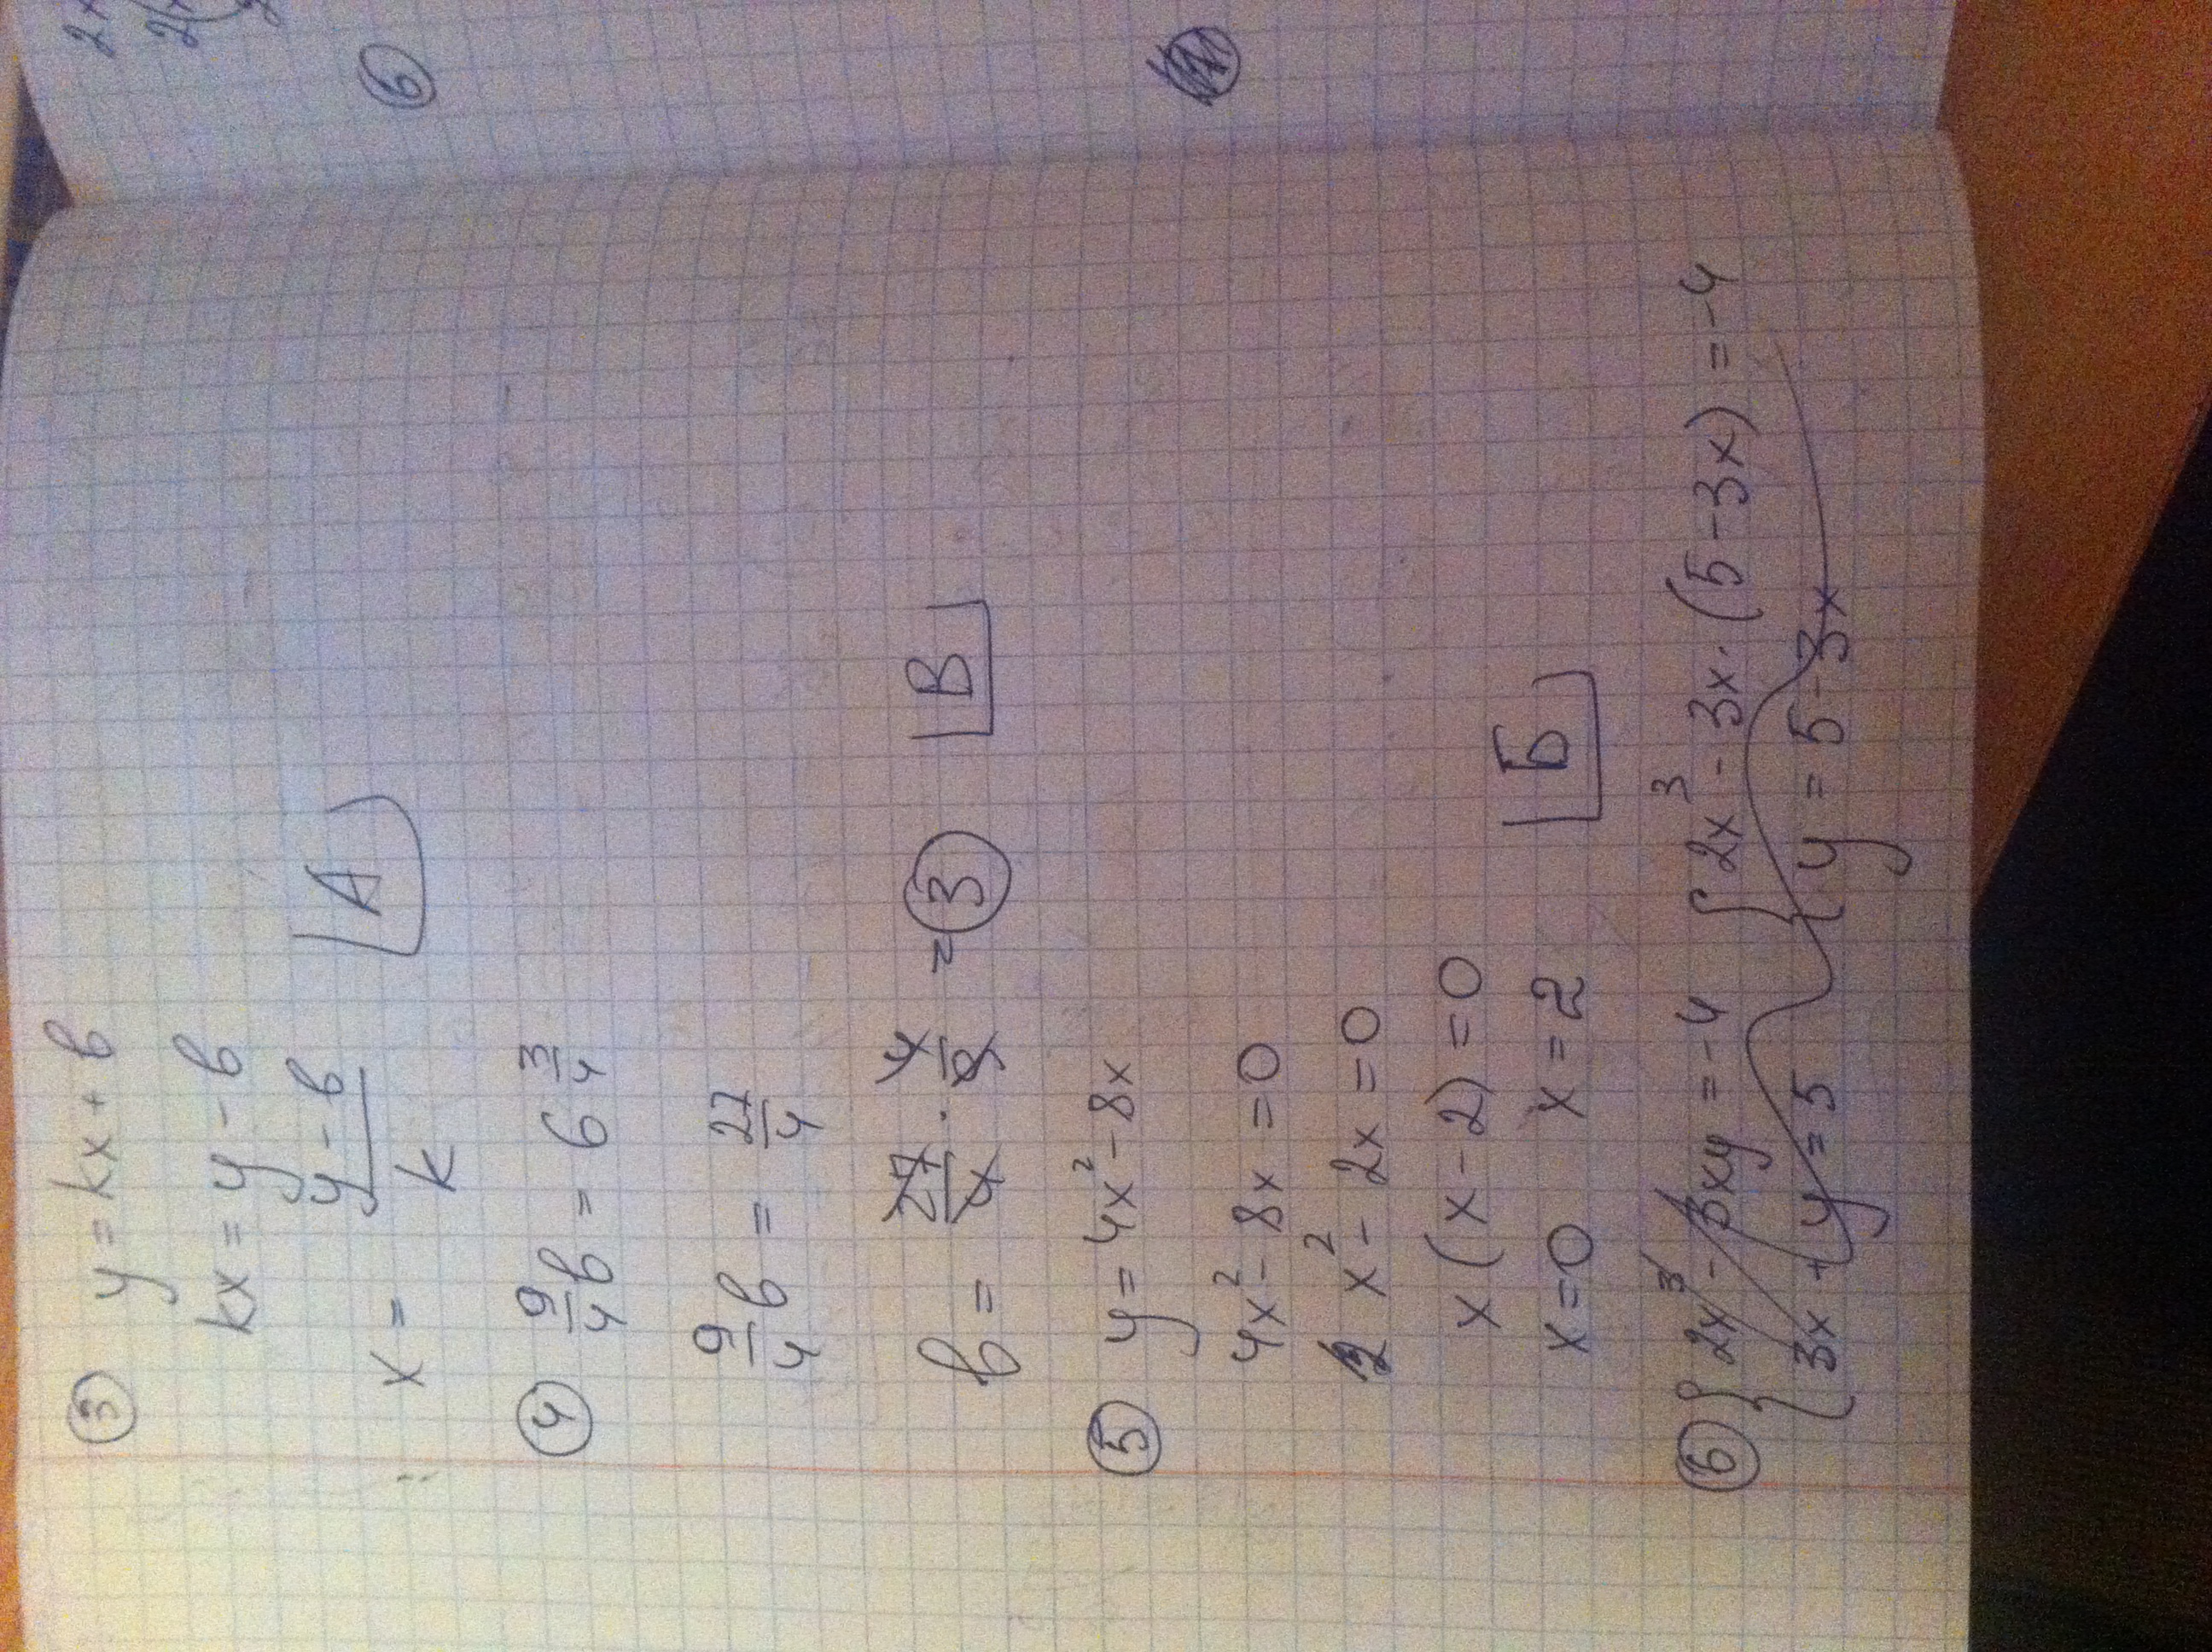 ③ y = kx + b
kx = y - b
x = (y - b)/k
А
④ 9/4 b = 6 3/4
9/4 b = 27/4
b = 27/4 · 4/9 = 3
В
⑤ y = 4x² - 8x
4x² - 8x = 0
x² - 2x = 0
x(x - 2) = 0
x = 0 x = 2
Б
⑥ { 2x³ - 3xy = -4 { 2x³ - 3x · (5 - 3x) = -4
{ 3x + y = 5 { y = 5 - 3x
⑥